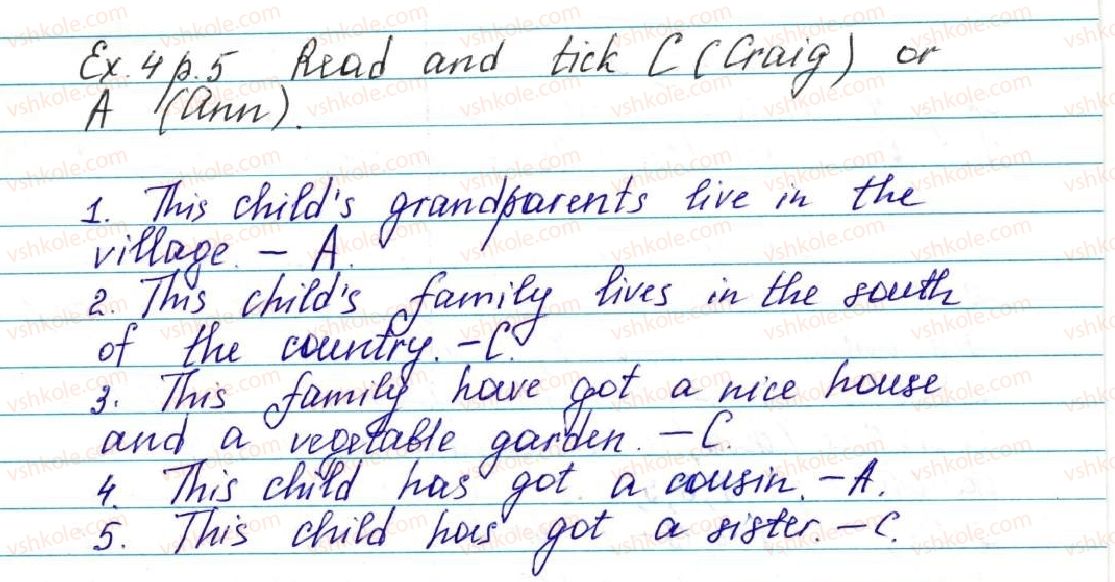 Ex. 4 p. 5 Read and tick C (Craig) or
A (Ann).
1. This child's grandparents live in the
village. – A.
2. This child's family lives in the south
of the country. – C.
3. This family have got a nice house
and a vegetable garden. – C.
4. This child has got a cousin. – A.
5. This child has got a sister. – C.
vshkole.com